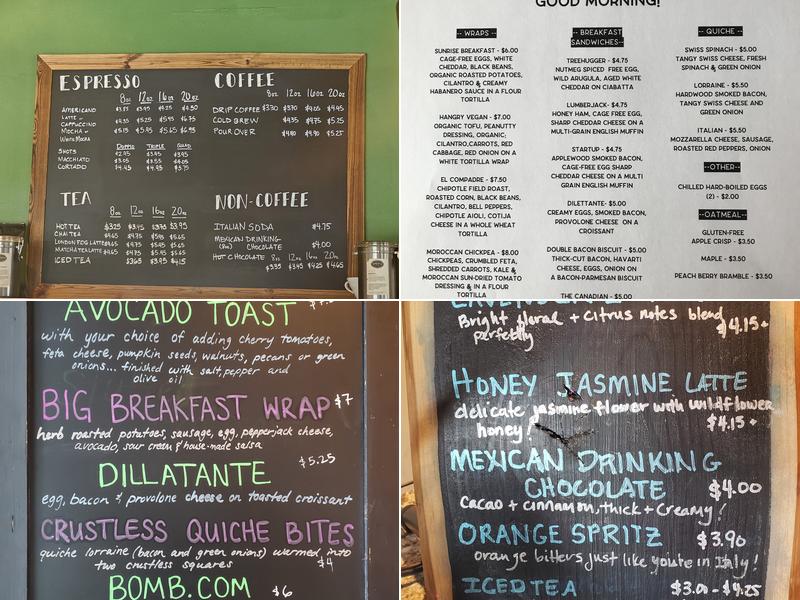 ESPRESSO
8oz 12oz 16oz 20oz
AMERICANO $3.55 $3.95 $4.25 $4.50
LATTE or
CAPPUCCINO $4.55 $5.25 $5.45 $5.75
MOCHA or $5.15 $5.45 $5.65 $6.95
WHITE MOCHA
DOPPIO TRIPLE QUAD
SHOTS $2.95 $3.45 $3.95
MACCHIATO $3.05 $3.55 $4.05
CORTADO $4.45 $4.95 $5.75
COFFEE
8oz 12oz 16oz 20oz
DRIP COFFEE $3.30 $3.70 $4.05 $4.45
COLD BREW $4.35 $4.75 $5.25
POUR OVER $4.40 $4.90 $5.25
TEA
8oz 12oz 16oz 20oz
HOT TEA $3.25 $3.45 $3.75 $3.95
CHAI TEA $4.65 $4.75 $5.45 $5.65
LONDON FOG LATTE $4.65 $4.75 $5.45 $5.65
MATCHA TEA LATTE $4.65 $4.75 $5.45 $5.65
ICED TEA $3.65 $3.95 $4.15
NON-COFFEE
ITALIAN SODA $4.75
MEXICAN DRINKING
CHOCOLATE $4.00
HOT CHOCOLATE 8oz 12oz 16oz 20oz
$3.55 $3.95 $4.25 $4.65
GOOD MORNING!
-- WRAPS --
SUNRISE BREAKFAST - $6.00
CAGE-FREE EGGS, WHITE
CHEDDAR, BLACK BEANS,
ORGANIC ROASTED POTATOES,
CILANTRO & CREAMY
HABANERO SAUCE IN A FLOUR
TORTILLA
HANGRY VEGAN - $7.00
ORGANIC TOFU, PEANUTTY
DRESSING, ORGANIC:
CILANTRO,CARROTS, RED
CABBAGE, RED ONION ON A
WHITE TORTILLA WRAP
EL COMPADRE - $7.50
CHIPOTLE FIELD ROAST,
ROASTED CORN, BLACK BEANS,
CILANTRO, BELL PEPPERS,
CHIPOTLE AIOLI, COTIJA
CHEESE IN A WHOLE WHEAT
TORTILLA
MOROCCAN CHICKPEA - $8.00
CHICKPEAS, CRUMBLED FETA,
SHREDDED CARROTS, KALE &
MOROCCAN SUN-DRIED TOMATO
DRESSING & IN A FLOUR
TORTILLA
-- BREAKFAST
SANDWICHES--
TREEHUGGER - $4.75
NUTMEG SPICED FREE EGG,
WILD ARUGULA, AGED WHITE
CHEDDAR ON CIABATTA
LUMBERJACK- $4.75
HONEY HAM, CAGE FREE EGG,
SHARP CHEDDAR CHEESE ON A
MULTI-GRAIN ENGLISH MUFFIN
STARTUP - $4.75
APPLEWOOD SMOKED BACON,
CAGE-FREE EGG SHARP
CHEDDAR CHEESE ON A MULTI
GRAIN ENGLISH MUFFIN
DILETTANTE- $5.00
CREAMY EGGS, SMOKED BACON,
PROVOLONE CHEESE ON A
CROISSANT
DOUBLE BACON BISCUIT - $5.00
THICK-CUT BACON, HAVARTI
CHEESE, EGGS, ONION ON
A BACON-PARMESAN BISCUIT
THE CANADIAN - $5.00
-- QUICHE --
SWISS SPINACH - $5.00
TANGY SWISS CHEESE, FRESH
SPINACH & GREEN ONION
LORRAINE - $5.50
HARDWOOD SMOKED BACON,
TANGY SWISS CHEESE AND
GREEN ONION
ITALIAN - $5.50
MOZZARELLA CHEESE, SAUSAGE,
ROASTED RED PEPPERS, ONION
--OTHER--
CHILLED HARD-BOILED EGGS
(2) - $2.00
--OATMEAL--
GLUTEN-FREE
APPLE CRISP - $3.50
MAPLE - $3.50
PEACH BERRY BRAMBLE - $3.50
AVOCADO TOAST
with your choice of adding cherry tomatoes,
feta cheese, pumpkin seeds, walnuts, pecans or green
onions... finished with salt, pepper and
olive oil
BIG BREAKFAST WRAP $7
herb roasted potatoes, sausage, egg, pepperjack cheese,
avocado, sour cream & house-made salsa
$5.25
DILLATANTE
egg, bacon & provolone cheese on toasted croissant
CRUSTLESS QUICHE BITES
quiche lorraine (bacon and green onions) warmed, into
two crustless squares $4
BOMB.COM $6
Bright floral + citrus notes blend
perfectly $4.15+
HONEY JASMINE LATTE
delicate jasmine flower with wildflower
honey! $4.15+
MEXICAN DRINKING
CHOCOLATE $4.00
Cacao + cinnamon, thick + creamy!
ORANGE SPRITZ $3.90
orange bitters just like you're in Italy!
ICED TEA $3.00 - $4.25